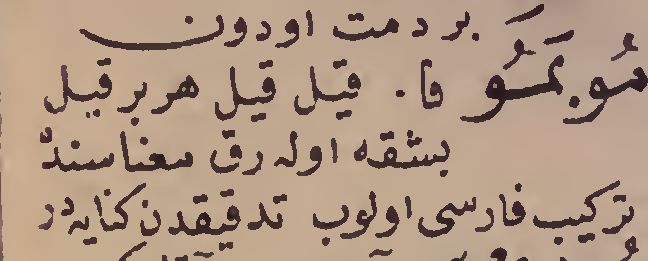 بر دمت اودون
مُو بَمُو فا. قیل قیل هر بر قیل
بشقه اوله رق معناسندْ
ترکیب فارسی اولوب تدقیقدن کنایه در